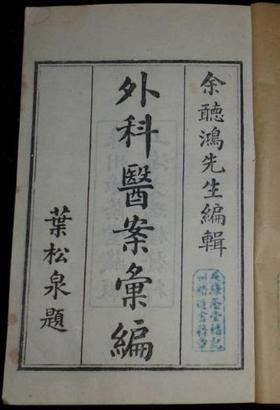 余聽鴻先生編輯
外科醫案彙編
葉松泉題